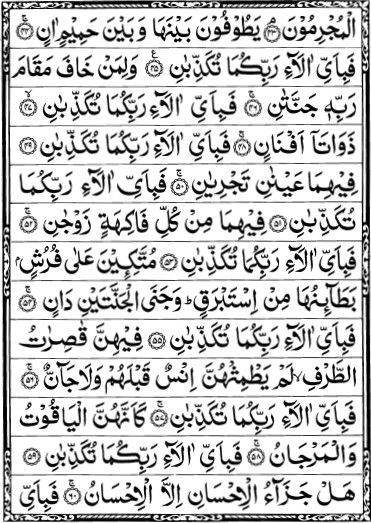 الْمُجْرِمُوْنَ ﴿٤٣﴾ يَطُوْفُوْنَ بَيْنَهَا وَبَيْنَ حَمِيْمٍ اٰنٍ ﴿٤٤﴾
فَبِاَىِّ اٰلَآءِ رَبِّكُمَا تُكَذِّبٰنِ ﴿٤٥﴾ وَلِمَنْ خَافَ مَقَامَ
رَبِّهٖ جَنَّتٰنِ ﴿٤٦﴾ فَبِاَىِّ اٰلَآءِ رَبِّكُمَا تُكَذِّبٰنِ ﴿٤٧﴾
ذَوَاتَاۤ اَفْنَانٍ ﴿٤٨﴾ فَبِاَىِّ اٰلَآءِ رَبِّكُمَا تُكَذِّبٰنِ ﴿٤٩﴾
فِيْهِمَا عَيْنٰنِ تَجْرِيٰنِ ﴿٥٠﴾ فَبِاَىِّ اٰلَآءِ رَبِّكُمَا
تُكَذِّبٰنِ ﴿٥١﴾ فِيْهِمَا مِنْ كُلِّ فَاكِهَةٍ زَوْجٰنِ ﴿٥٢﴾
فَبِاَىِّ اٰلَآءِ رَبِّكُمَا تُكَذِّبٰنِ ﴿٥٣﴾ مُتَّكِـِٕيْنَ عَلٰى فُرُشٍۭ
بَطَآئِنُهَا مِنْ اِسْتَبْرَقٍ ؕ وَجَنَى الْجَنَّتَيْنِ دَانٍ ﴿٥٤﴾
فَبِاَىِّ اٰلَآءِ رَبِّكُمَا تُكَذِّبٰنِ ﴿٥٥﴾ فِيْهِنَّ قٰصِرٰتُ
الطَّرْفِ ۙ لَمْ يَطْمِثْهُنَّ اِنْسٌ قَبْلَهُمْ وَلَا جَآنٌّ ﴿٥٦﴾
فَبِاَىِّ اٰلَآءِ رَبِّكُمَا تُكَذِّبٰنِ ﴿٥٧﴾ كَاَنَّهُنَّ الْيَاقُوْتُ
وَالْمَرْجَانُ ﴿٥٨﴾ فَبِاَىِّ اٰلَآءِ رَبِّكُمَا تُكَذِّبٰنِ ﴿٥٩﴾
هَلْ جَزَآءُ الْاِحْسَانِ اِلَّا الْاِحْسَانُ ﴿٦٠﴾ فَبِاَىِّ